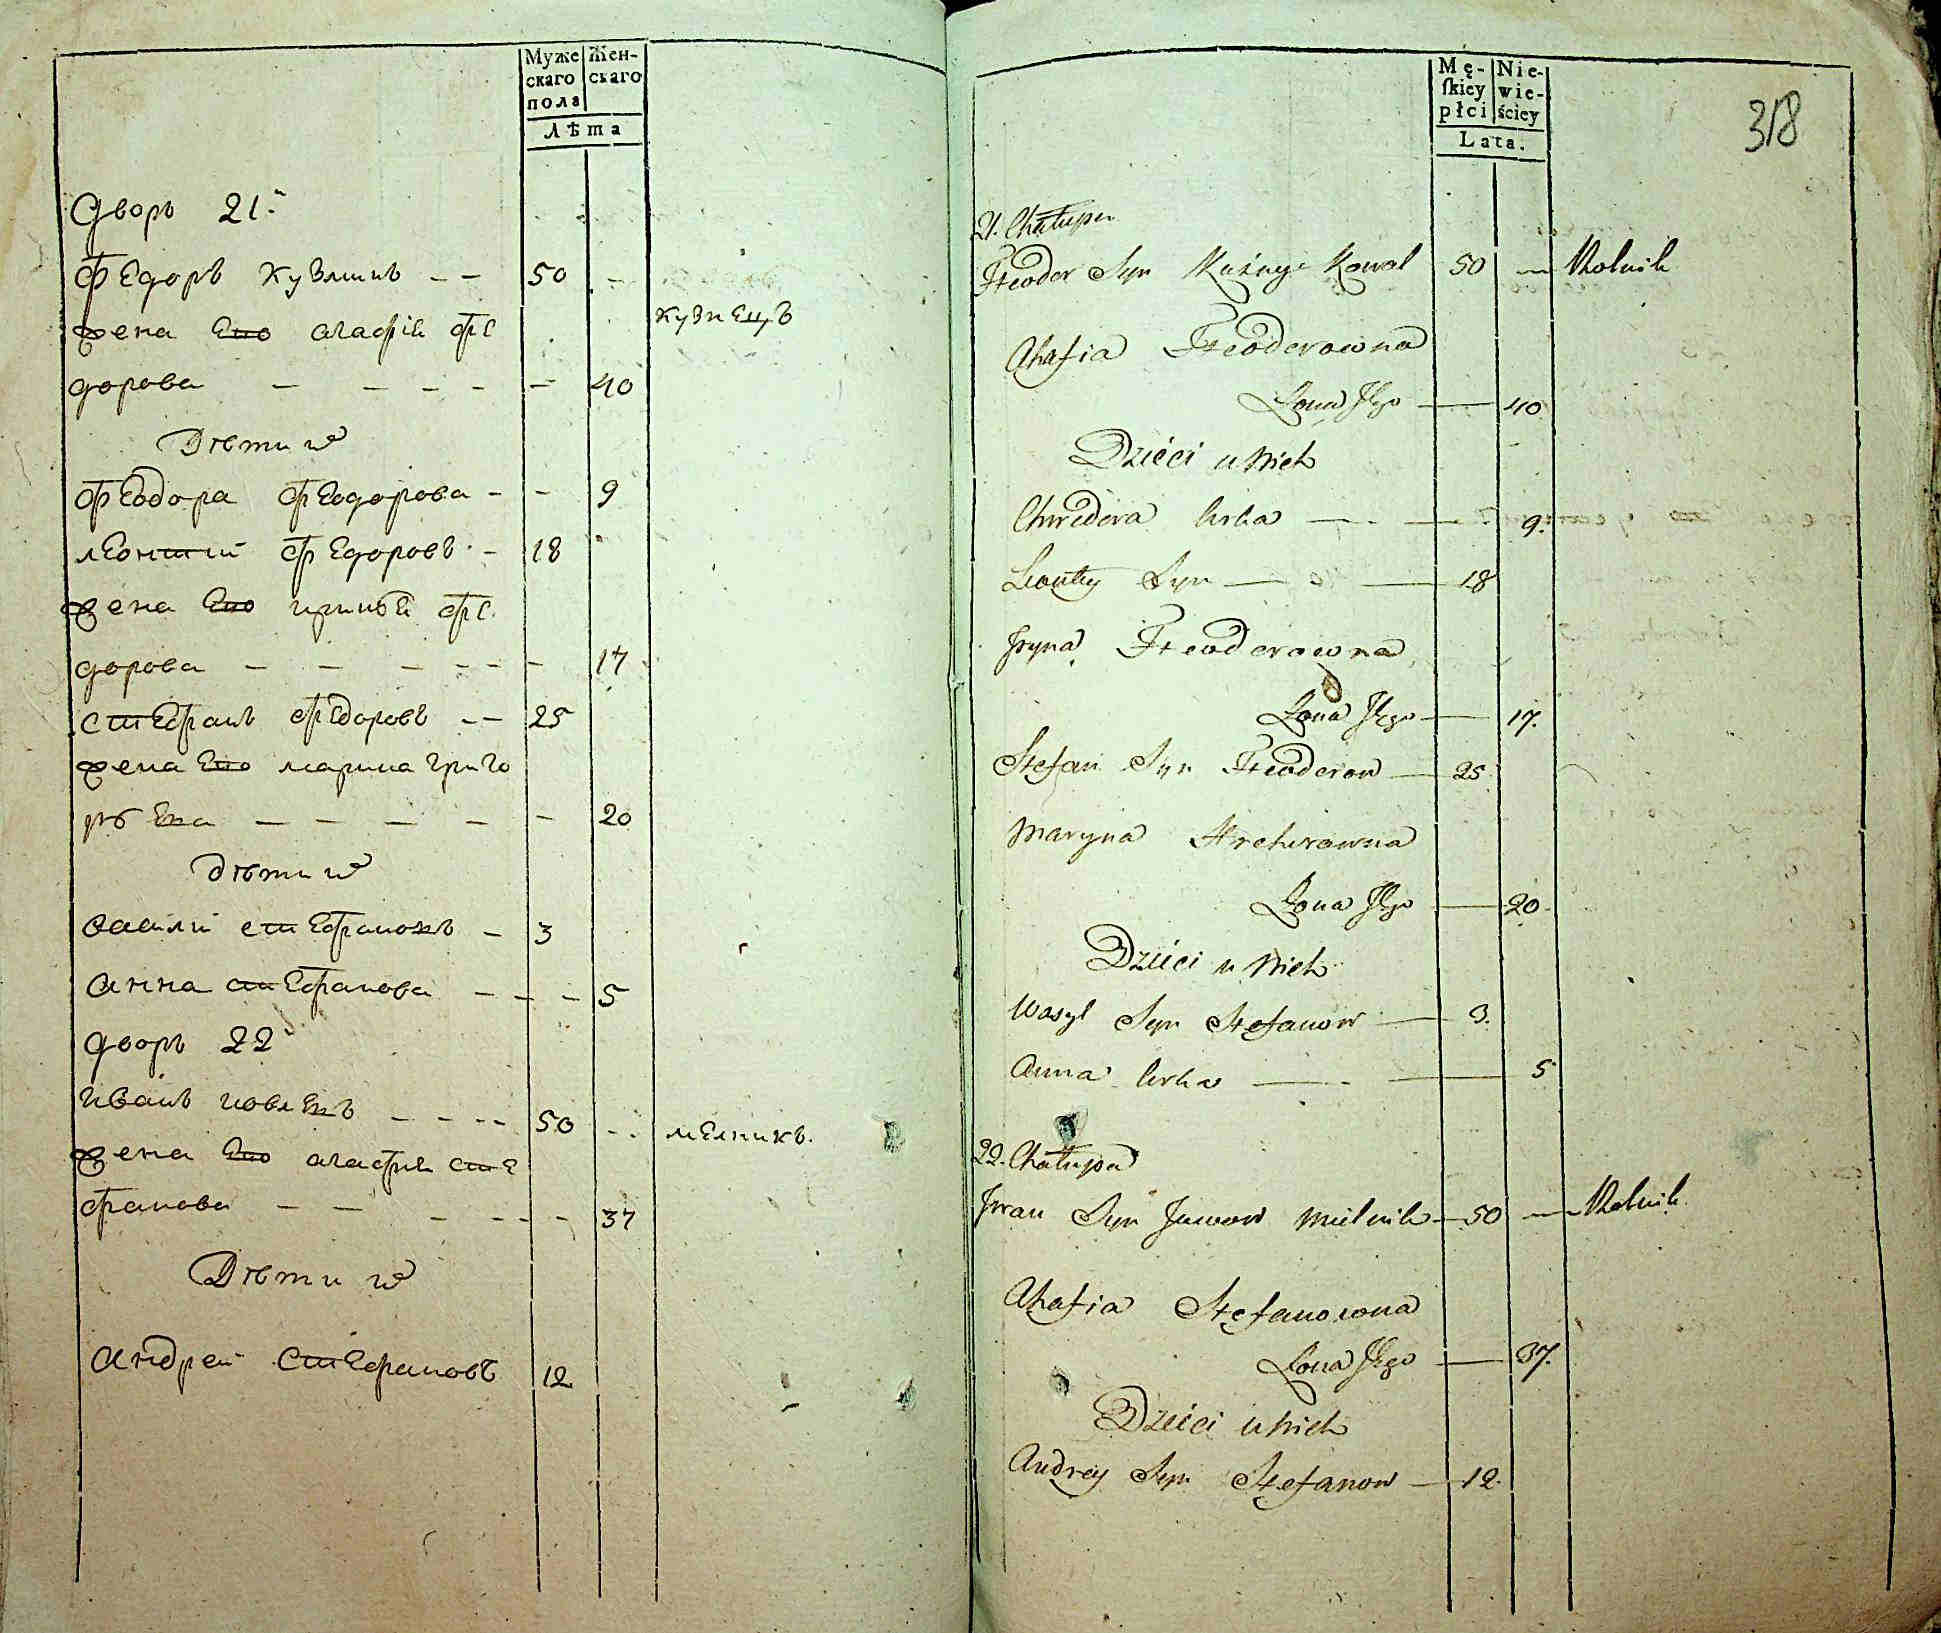 Муже Жен-
скаго скаго
пола
Лѣта
Дворъ 21й
Федоръ Кузминъ — — 50 —
кузнецъ
жена Его агафія Фе
дорова — — — — — 40
Дѣти ихъ
Феодора Феодорова - - 9
леонтий Федоровъ - 18
жена Его ирина Фе
дорова — — — — — 17
стефанъ Федоровъ — 25
жена Его марина григо
рьева — — — — — 20
дѣти ихъ
васили стефановъ — 3
анна стефанова — — — 5
дворъ 22й
иванъ — — — — 50 - -
мелникъ.
жена Его агафия сте
фанова — — — — — 37
Дѣти ихъ
андрей Стефановъ 12
318
Mę- Nie-
skiey wie-
płci ściey
Lata.
21. Chałupa
Fteodor Syn Kuźmy Kowal 50 — Rolnik
Ahafia Fteoderowna
Żona Jego — 40
Dzieci u Nich
Chwedora Curka — — 9.
Leonty Syn — — 18
Jryna Fteoderowna
Żona Jego — 17.
Stefan Syn Fteoderow — 25
Maryna Hrehorowna
Żona Jego — 20.
Dzieci u Nich
Wasyl Syn Stefanow — 3.
Anna Curka — — 5
22. Chałupa
Jwan Syn Mielnik — 50 — Rolnik
Ahafia Stefanowna
Żona Jego — 37.
Dzieci u Nich
Andrey Syn Stefanow — 12.